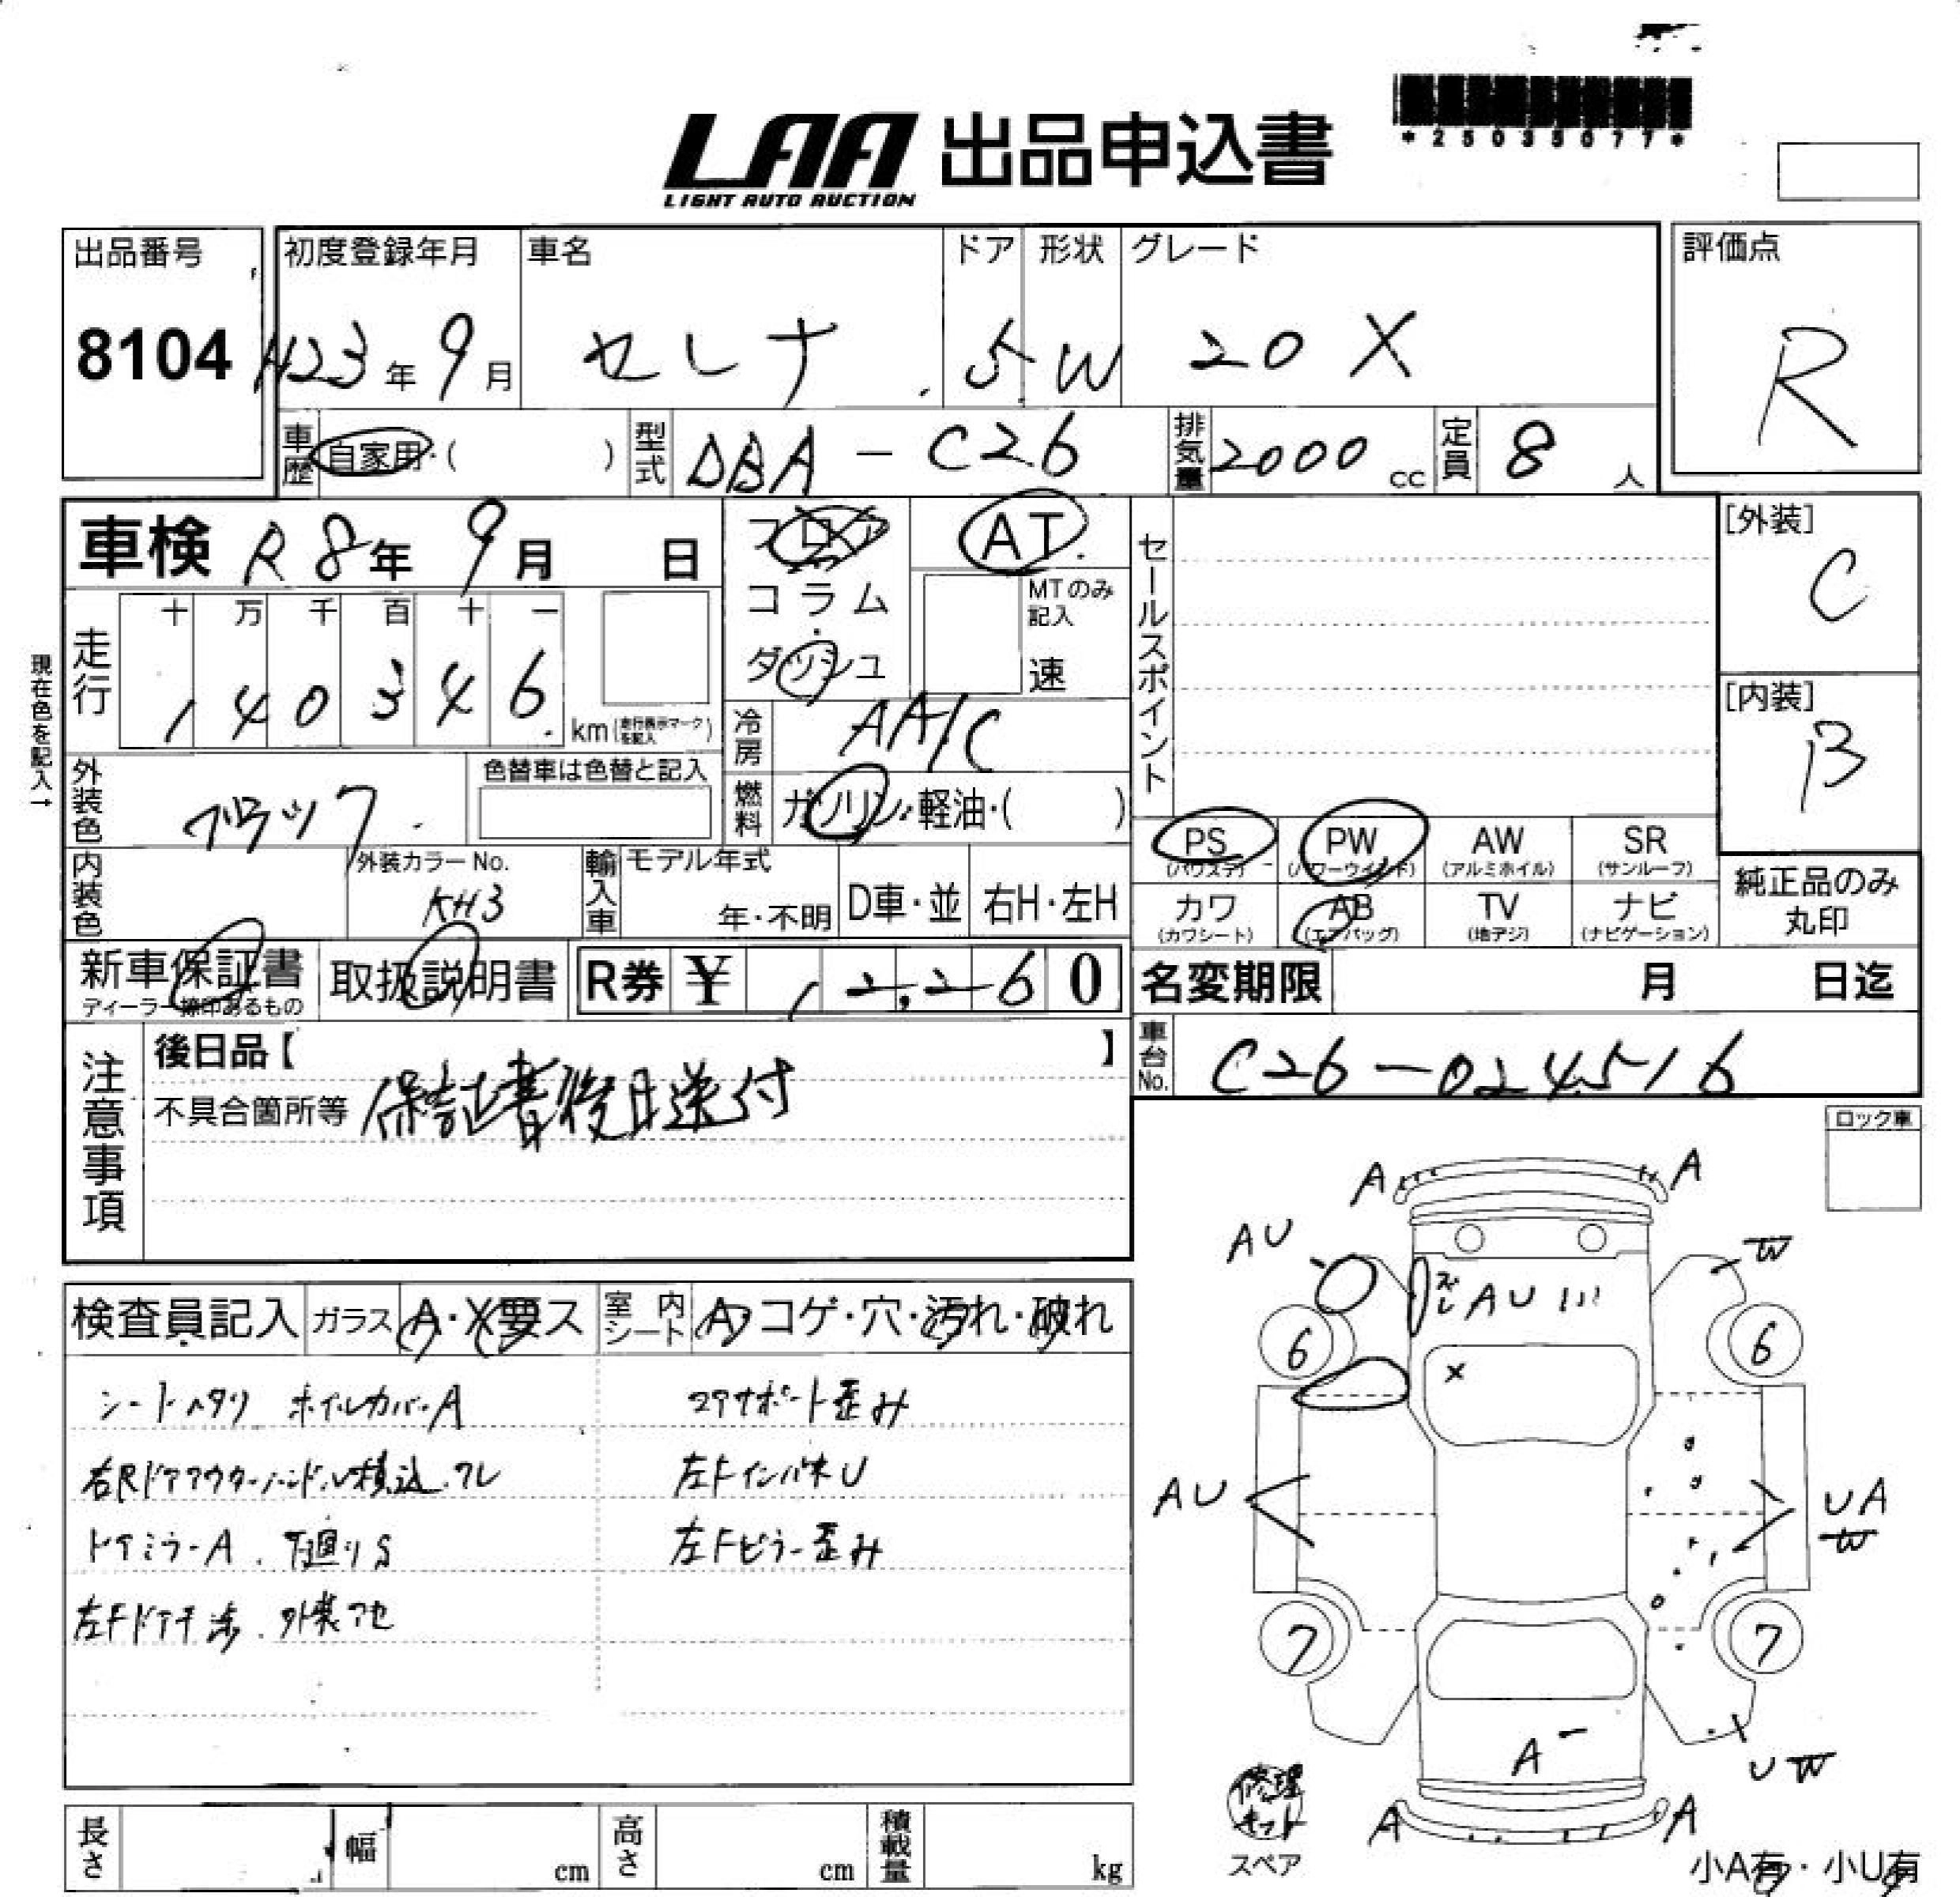 LAA 出品申込書
LIGHT AUTO AUCTION
*25035077*
出品番号
8104
初度登録年月 車名 ドア 形状 グレード
H23年 9月 セレナ 5 W 20X
評価点
R
車歴 自家用・( ) 型式 DBA-C26 排気量 2000cc 定員 8人
車検 R8年 9月 日
フロア
コラム
ダッシュ
AT
MTのみ記入
速
セールスポイント
[外装]
C
[内装]
B
現在色を記入→
走行 十 万 千 百 十 一
1 4 0 3 4 6 km(走行表示マークを記入)
冷房 AA/C
外装色 ブラック 色替車は色替と記入
燃料 ガソリン・軽油・( )
PS (パワステ) PW (パワーウインド) AW (アルミホイル) SR (サンルーフ)
カワ (カワシート) AB (エアバッグ) TV (地デジ) ナビ (ナビゲーション)
純正品のみ丸印
内装色 外装カラーNo. KH3 輸入車 モデル年式 年・不明 D車・並 右H・左H
新車保証書 ディーラー捺印あるもの 取扱説明書 R券 ¥ 12,260
名変期限 月 日迄
車台No. C26-024516
注意事項
後日品【 】
不具合箇所等 保証書後日送付
ロック車
検査員記入 ガラス A・X要ス 室内シート A・コゲ・穴・汚れ・破れ
シートヘタリ ホイルカバーA コアサポート歪み
右Rドアアウターハンドル積込ワレ 左FインパネU
ドアミラーA. 下廻りS 左Fピラー歪み
左Fドア干渉. 外装アセ
A A
AU W
ズレ AU
6 6
X
AU UA
W
7 7
A
UW
A A
修理キット
スペア
小A有・小U有
長さ 幅 cm 高さ cm 積載量 kg